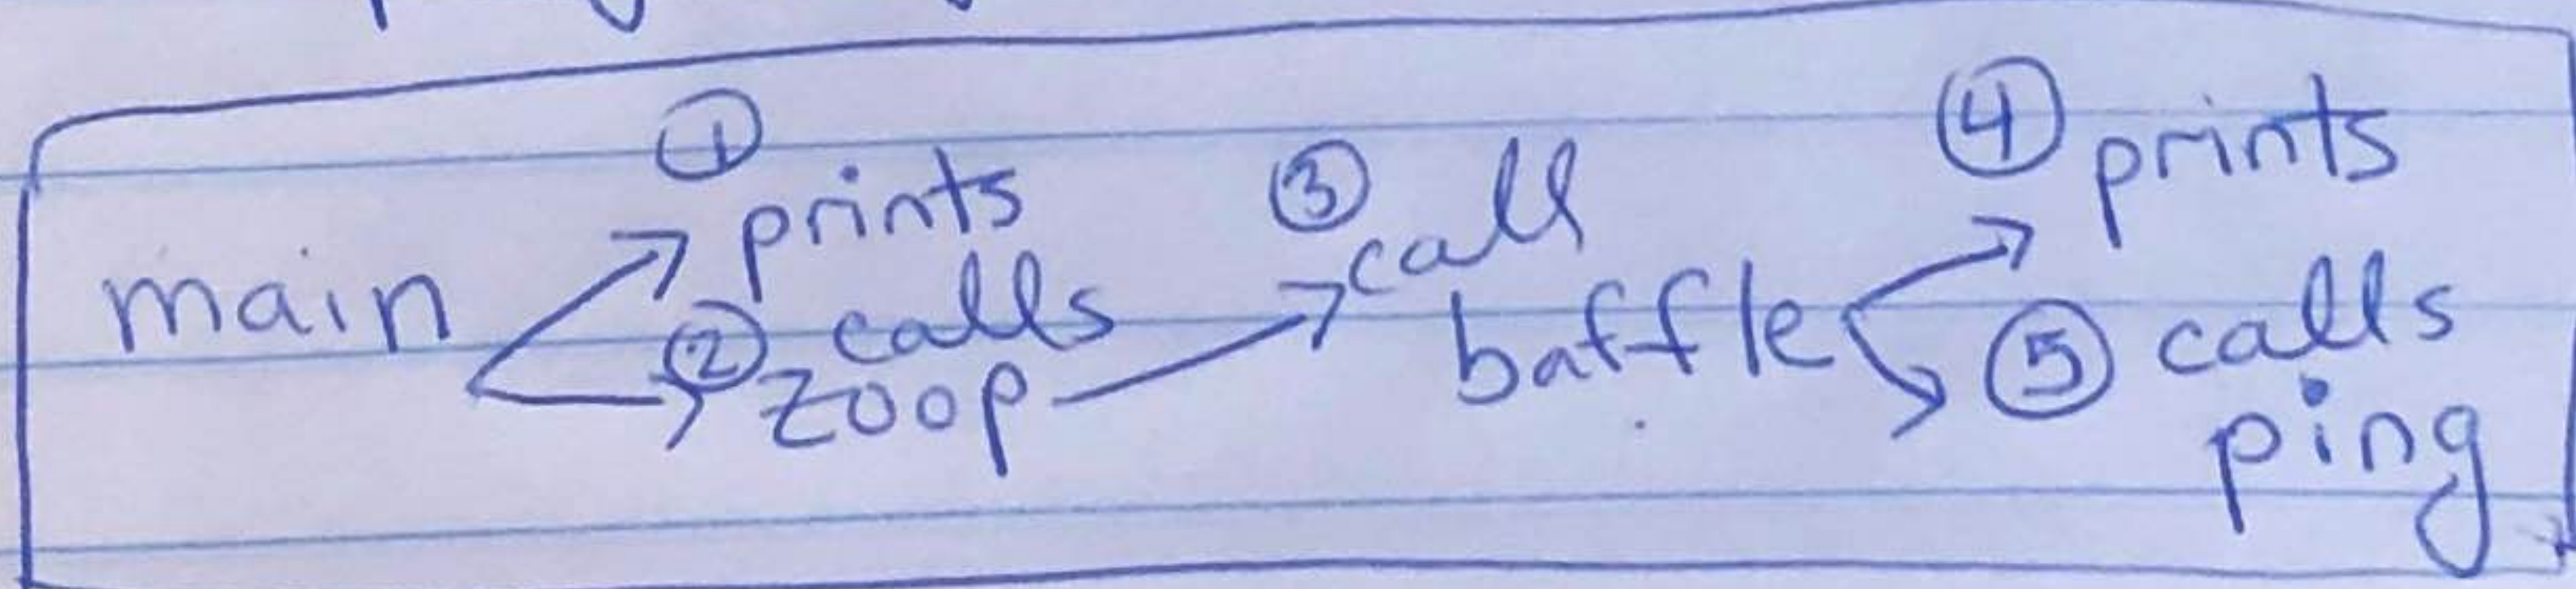 main
① prints
② calls
zoop
③ call
baffle
④ prints
⑤ calls
ping